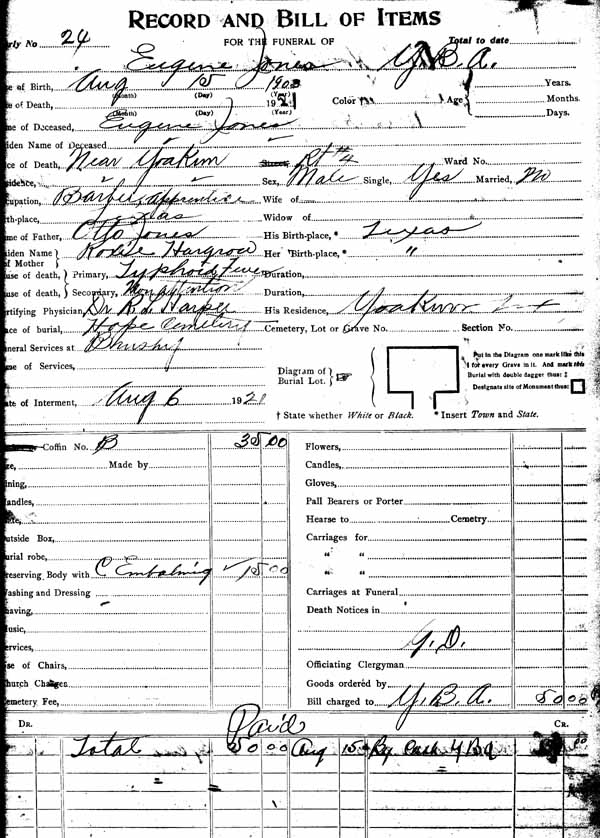 RECORD AND BILL OF ITEMS
rly No 24 FOR THE FUNERAL OF Total to date
Eugene Jones Y.B.A.
e of Birth, Aug 15 1903 Years.
(Month) (Day) (Year)
e of Death, 1921 Color Age Months.
(Month) (Day) (Year) Days.
me of Dceased, Eugene Jones
iden Name of Deceased
ce of Death, Near Yoakum Street, Rt #4 Ward No.
sidence, Sex, Male Single, Yes Married, No
cupation, Barber, apprentice Wife of
rth-place, Texas Widow of
me of Father, Otto Jones His Birth-place,* Texas
iden Name of Mother Hargrow Her Birth-place,* "
use of death, Primary, Typhoid Fever Duration,
use of death, Secondary, Duration,
rtifying Physician, Dr Harper His Residence, Yoakum
ace of burial, Hope Cemetery Cemetery, Lot or Grave No. Section No.
neral Services at
me of Services,
Diagram of Burial Lot.
Put in the Diagram one mark like this
I for every Grave in it. And mark this
Burial with double dagger thus: ‡
Designate site of Monument thus:
ate of Interment, Aug 6 1921
† State whether White or Black. * Insert Town and State.
Coffin No. B 35.00 Flowers,
ze, Made by Candles,
ining, Gloves,
andles, Pall Bearers or Porter
late, Hearse to Cemetry
utside Box, Carriages for
urial robe, " "
reserving Body with C Embalming ✓ 15.00 " "
ashing and Dressing Carriages at Funeral
having, Death Notices in
usic,
ervices, Y.D.
se of Chairs, Officiating Clergyman
hurch Charges Goods ordered by
emetery Fee, Bill charged to Y.B.A. 50.00
DR. Paid CR.
Total 50.00 Aug 15 By Cash